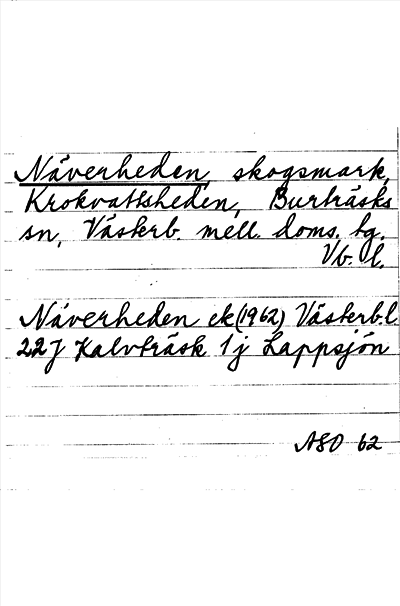 Näverheden, skogsmark,
Krokvattsheden, Burträsks
sn, Västerb. mell. doms. tg.
Vb. l.
Näverheden ek (1962) Västerb. l.
22J Kalvträsk 1j Lappsjön
ASO 62